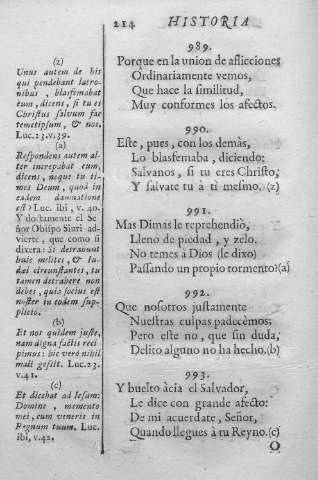 214 HISTORIA
(z)
Unus autem de his
qui pendebant latro-
nibus, blasfemabat
eum, dicens, si tu es
Christus salvum fac
temetipsum, & nos.
Luc.23.v.39.
(a)
Respondens autem al-
ter increpabat eum,
dicens, neque tu ti-
mes Deum, quod in
eadem damnatione
est? Luc. ibi, v. 40.
Y doctamente el Se-
ñor Obispo Siuri ad-
vierte, que como si
dixera: Si detrabunt
huic milites, & Iu-
dæi circunstantes, tu
tamen detrabere non
debes, quia socius est
noster in eodem sup-
plicio.
(b)
Et nos quidem juste,
nam digna factis reci
pimus: hic verò nibil
mali gessit. Luc.23.
v.41.
(c)
Et dicebat ad Iesum:
Domine, memento
mei, cum veneris in
Regnum tuum. Luc.
ibi, v.42.
989.
Porque en la vnion de aflicciones
Ordinariamente vemos,
Que hace la similitud,
Muy conformes los afectos.
990.
Este, pues, con los demàs,
Lo blasfemaba, diciendo:
Salvanos, si tu eres Christo,
Y salvate tu à ti mesmo. (z)
991.
Mas Dimas le reprehendiò,
Lleno de piedad, y zelo.
No temes à Dios (le dixo)
Passando un propio tormento?(a)
992.
Que nosotros justamente
Nuestras culpas padecèmos;
Pero este no, que sin duda,
Delito alguno no ha hecho.(b)
993.
Y buelto àcia el Salvador,
Le dice con grande afecto:
De mi acuerdate, Señor,
Quando llegues à tu Reyno.(c)
O